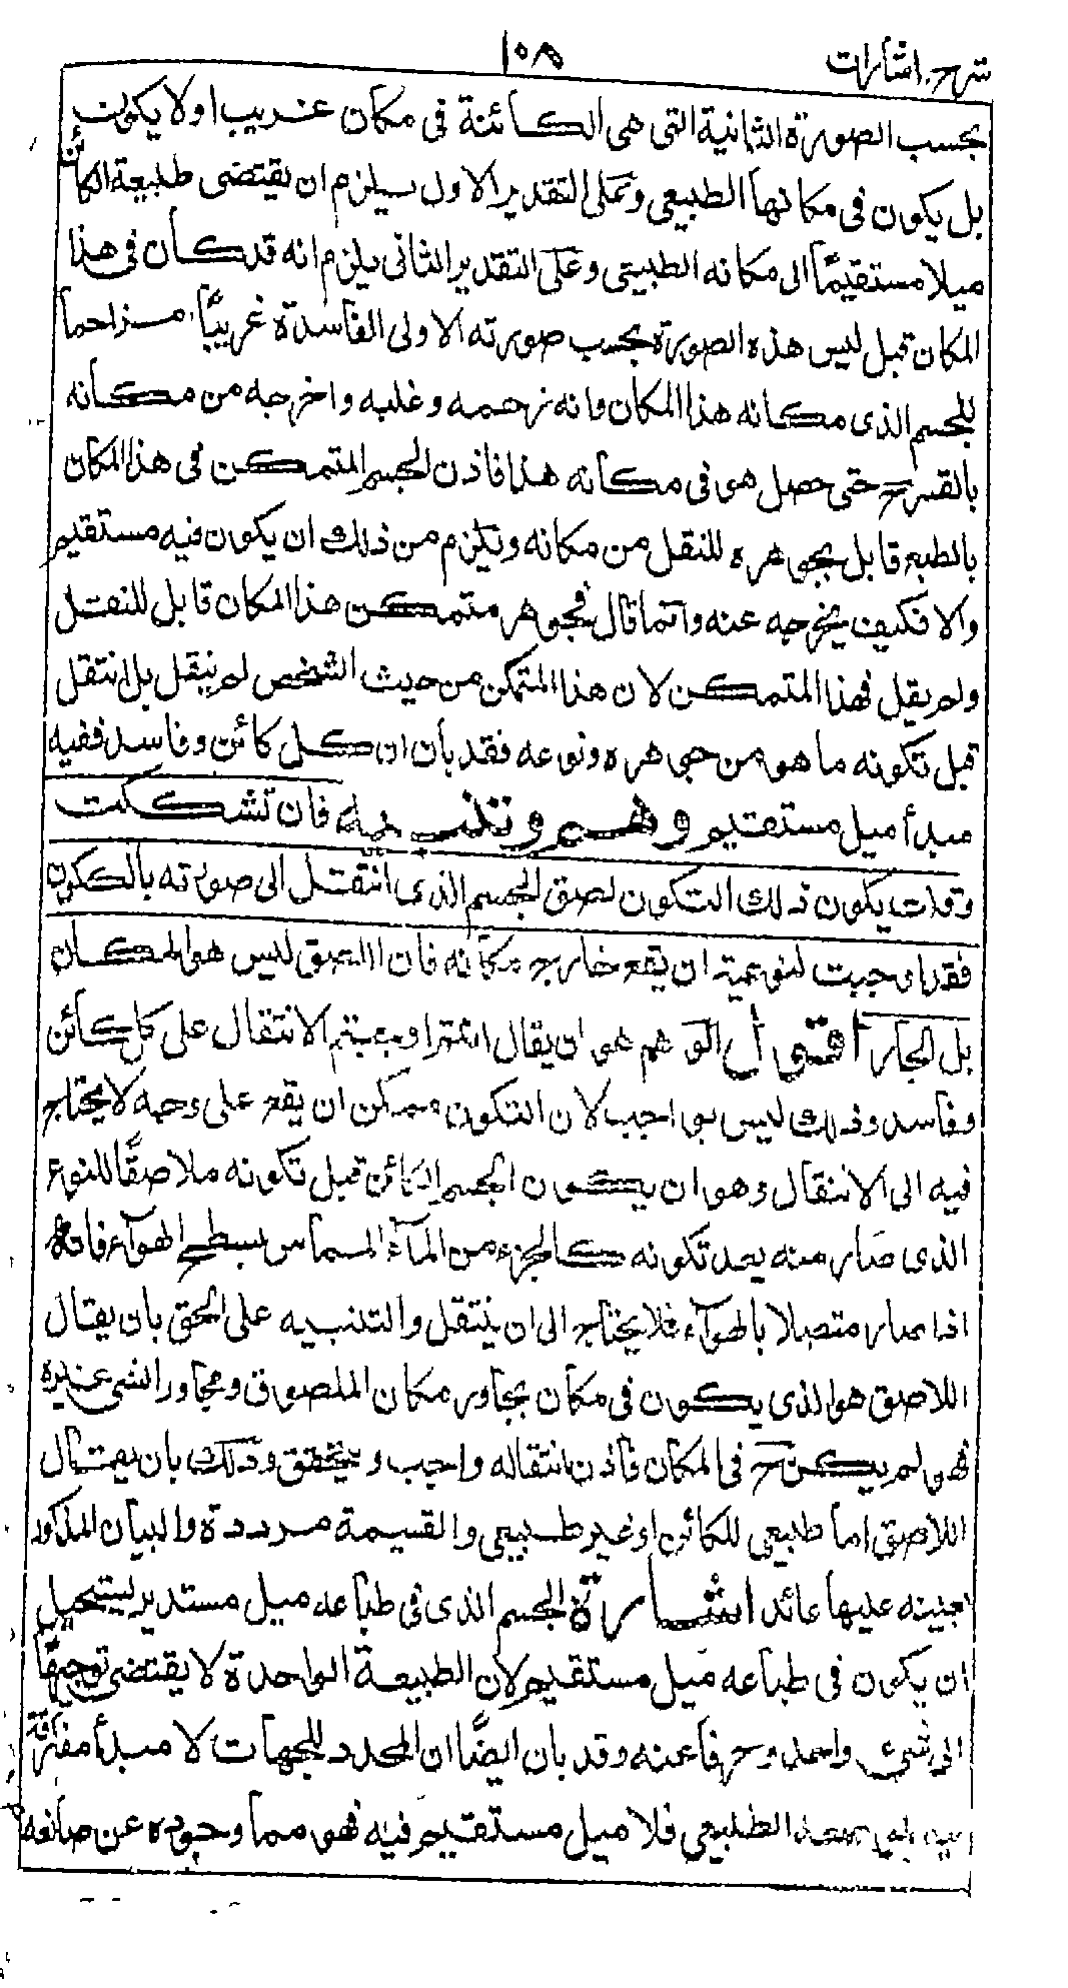 شرح اشارات
١٠٨
بحسب الصورة الثانية التي هي الكائنة في مكان غريب اولا يكون
بل يكون في مكانها الطبيعي وعلى التقدير الاول يلزم ان يقتضى طبيعة الكائن
ميلا مستقيما الى مكانه الطبيعي وعلى التقدير الثانى يلزم انه قد كان فى هذا
المكان قبل لبس هذه الصورة بحسب صورته الاولى الفاسدة غريبًا مزاحما
للجسم الذى مكانه هذا المكان وانه زحمه وغلبه واخرجه من مكانه
بالقسر ح حتى حصل هو فى مكانه هذا فاذن الجسم المتمكن فى هذا المكان
بالطبع قابل بجوهره للنقل من مكانه ويلزم من ذلك ان يكون فيه مستقيم
والا فكيف يخرجه عنه وانما قال فجوهر متمكن هذا المكان قابل للنقل
ولم يقل فهذا المتمكن لان هذا المتمكن من حيث الشخص لم ينقل بل انتقل
قبل تكونه ما هو من جوهره ونوعه فقد بان ان كل كائن وفاسد ففيه
مبدأ ميل مستقيم وهم وتنبيه فان تشككت
وقلت يكون ذلك التكون لصق الجسم الذى انتقل الى صورته بالكون
فقد اوجبت لنوعية ان يقع خارج مكانه فان اللصق ليس هو المكان
بل الجار اقول الوهم هو ان يقال انكم اوجبتم الانتقال على كل كائن
وفاسد وذلك ليس بواجب لان التكون ممكن ان يقع على وجه لا يحتاج
فيه الى الانتقال وهو ان يكون الجسم الكائن قبل تكونه ملاصقًا للنوع
الذى صار منه بعد تكونه كالجزء من المآء المماس بسطح الهوآء فانه
اذا صار متصلا بالهوآء فلا يحتاج الى ان ينتقل والتنبيه على الحق بان يقال
اللاصق هو الذى يكون فى مكان يجاور مكان الملصوق ومجاور الشئ غيره
فهو لم يكن ح فى المكان فاذن انتقاله واجب ويتحقق وذلك بان يقال
اللاصق اما طبيعى للكائن او غير طبيعى والقسيمة مرددة والبيان المذكور
بعينه عليها عائد اشارة الجسم الذى فى طباعه ميل مستدير يستحيل
ان يكون فى طباعه ميل مستقيم لان الطبيعة الواحدة لا يقتضى توجيهًا
الى شئ واحد وصرفا عنه وقد بان ايضًا ان المحدد للجهات لا مبدأ مفارقة
فيه لموضعه الطبيعى فلا ميل مستقيم فيه فهو مما وجوده عن صانعه